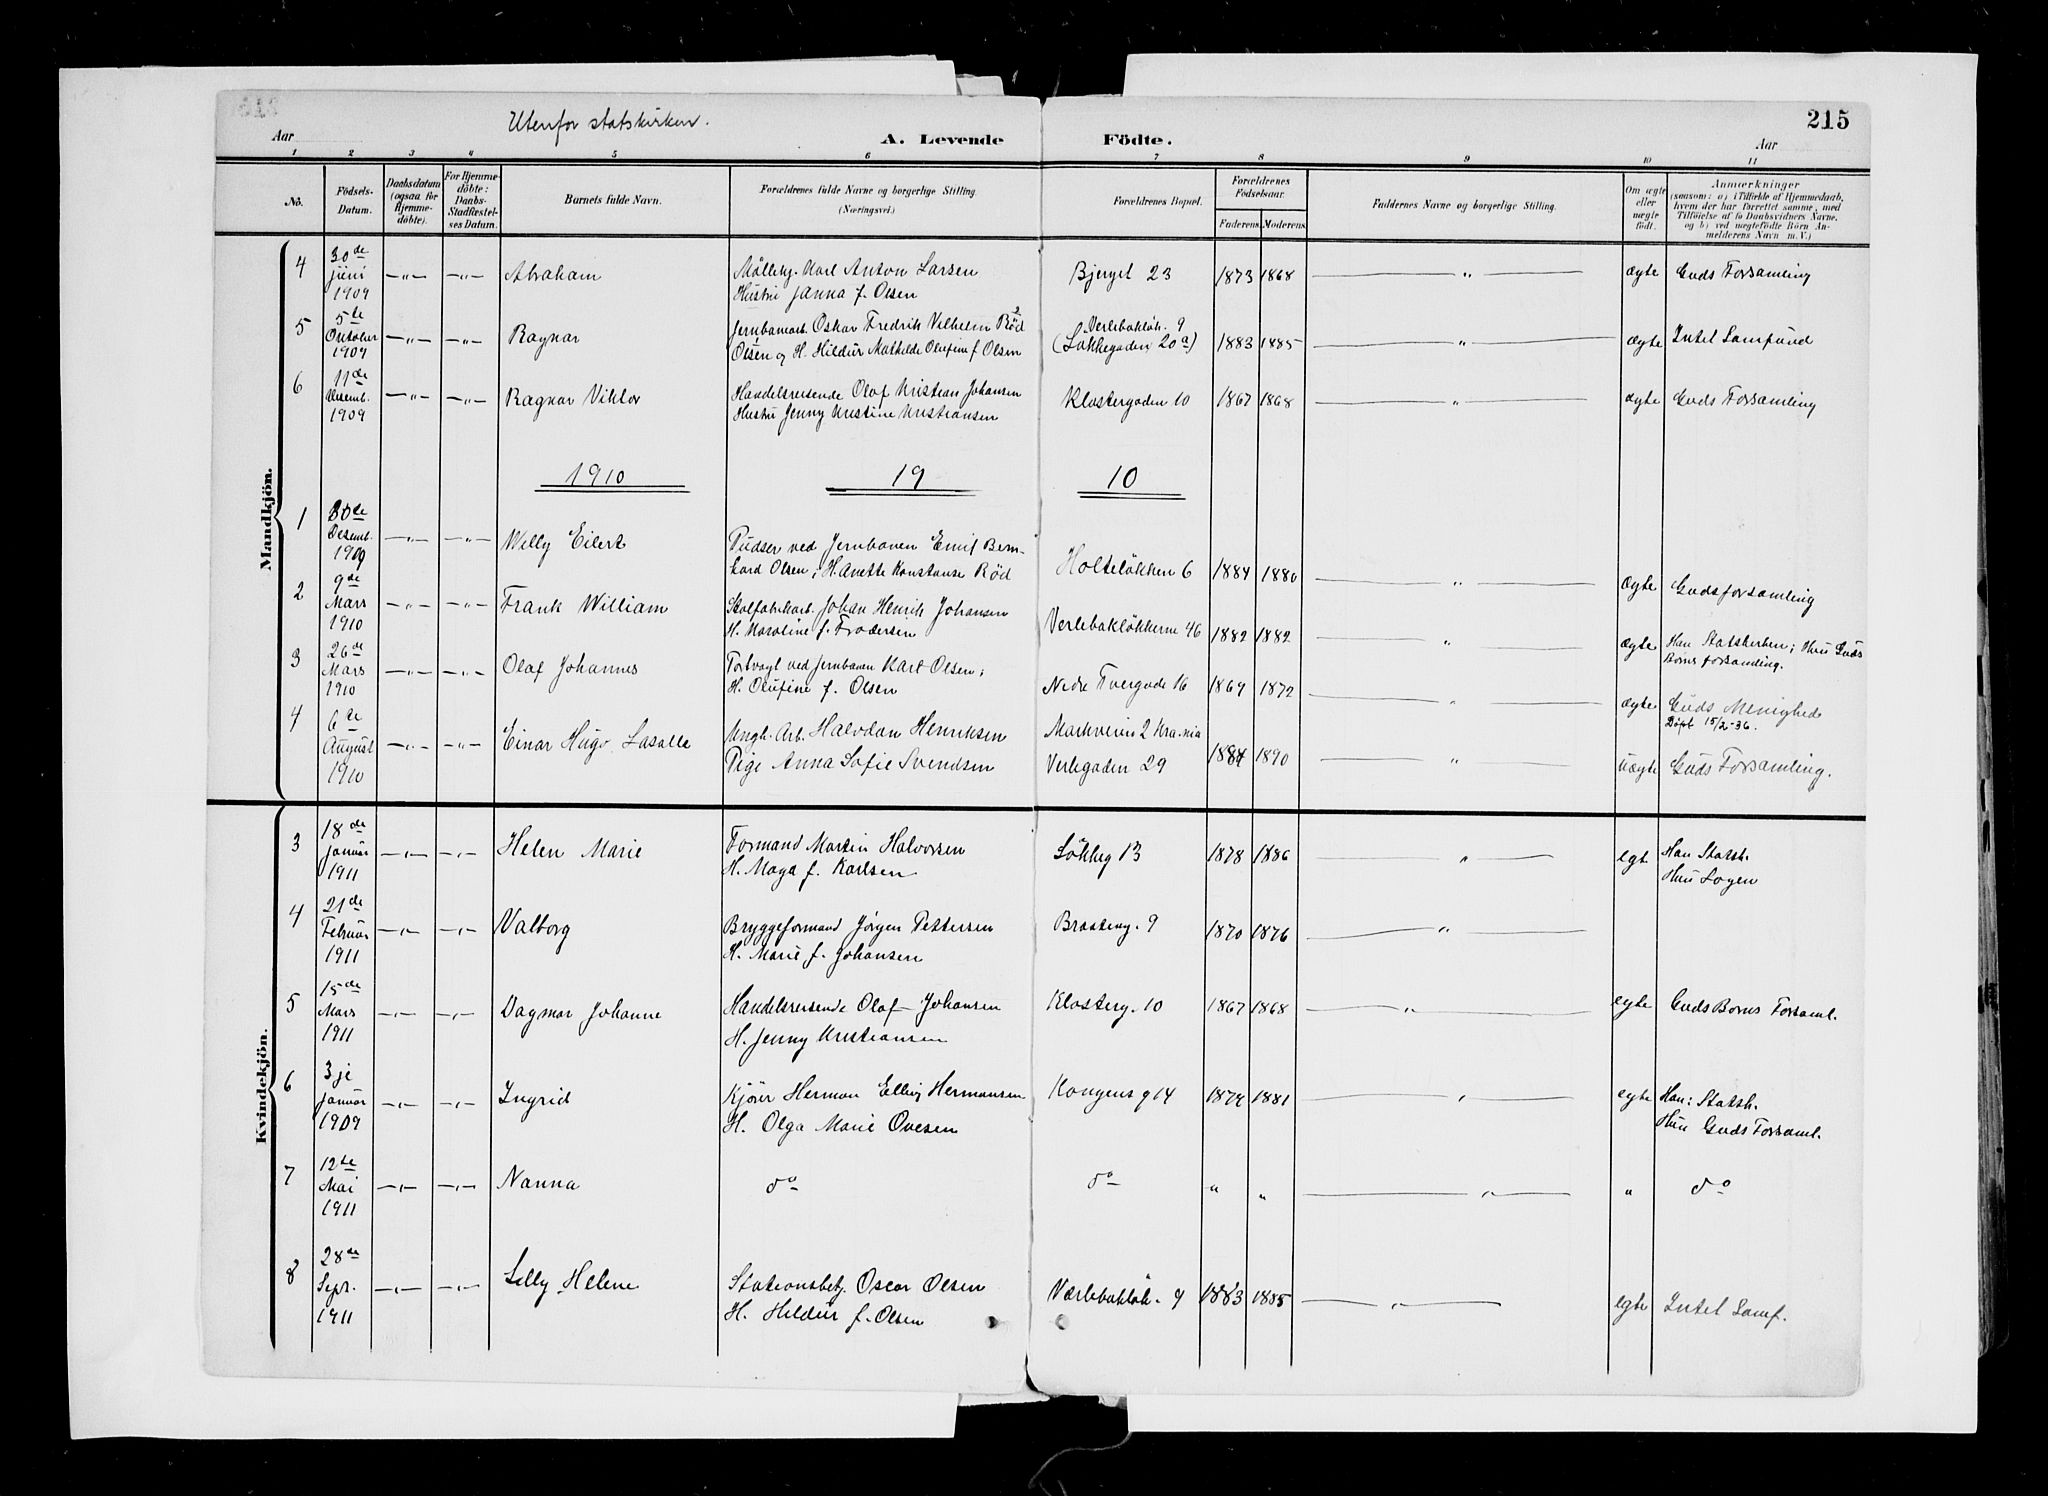 215
Utenfor statskirken.
Aar
A. Levende Födte.
Aar
1 2 3 4 5 6 7 8 9 10 11
No.
Födsels-Datum.
Daabsdatum (ogsaa for Hjemmedöbte).
For Hjemmedöbte: Daabs-Stadfæstelses Datum.
Barnets fulde Navn.
Forældrenes fulde Navne og borgerlige Stilling. (Næringsvei.)
Forældrenes Bopæl.
Forældrenes Födselsaar.
Faderens. Moderens.
Faddernes Navne og borgerlige Stilling.
Om ægte eller uægte födt.
Anmærkninger
(saasom: a) i Tilfælde af Hjemmedaab,
hvem der har forrettet samme, med
Tilföielse af to Daabsvidners Navne.
og b) ved uægtefödte Börn Anmelderens Navn m. V.)
Mandkjön.
4 30de Juni 1909 —„— —„— Abraham Karl Anton Larsen Bjerget 23 1873 1868 —„— ægte Guds Forsamling
Hustru Janna f. Olsen
5 5te Oktober 1909 —„— —„— Ragnar Jernbanearb. Oskar Fredrik Vilhelm Röd Verlebakløk. 9 1883 1885 —„— ægte Intet Samfund
Olsen og H. Hildur Mathilde Olufine f Olsen (Løkkegaden 20a)
6 11de Desemb. 1909 —„— —„— Ragnar Viktor Handelsreisende Olaf Kristian Johansen Klostergaden 10 1867 1868 —„— ægte Guds Forsamling
Hustru Jenny Kristine Kristiansen
1910 19 10
1 30te Desemb. 1909 —„— —„— Willy Eilert Pudser ved Jernbanen Emil Bern- Holteløkken 6 1884 1880 —„— ægte Gudsforsamling
hard Olsen; H. Anette Konstanse Röd
2 9de Mars 1910 —„— —„— Frank William Johan Henrik Johansen Verlebakløkkerne 46 1882 1882 —„— ægte Han Statskirken; Hun Guds
H. Karoline f. Frodersen Borns forsamling.
3 26de Mars 1910 —„— —„— Olaf Johannes ved Jernbanen Karl Olsen; Nedre Tvergade 16 1869 1872 —„— ægte Guds Menighed
H. Olufine f. Olsen Døpt 15/2-36.
4 6te August 1910 —„— —„— Einar Hugo Lasalle Ungk. Arb. Halvdan Henriksen Markveien 2 Kra.nia 1884 1890 —„— uægte Guds Forsamling.
Pige Anna Sofie Svendsen Verkgaden 29
Kvindekjön.
3 18de Januar 1911 —„— —„— Helen Marie Formand Martin Halvorsen Løkkeg 13 1878 1886 —„— egte Han Statsk.
H. Maga f. Karlsen Hun Logen
4 21de Februar 1911 —„— —„— Valborg Bryggeformand Jørgen Pettersen Braateng. 9 1870 1876 —„—
H. Marie f. Johansen
5 15de Mars 1911 —„— —„— Dagmar Johanne Handelsreisende Olaf Johansen Klosterg. 10 1867 1868 —„— egte Guds Borns Forsaml.
H. Jenny Kristiansen
6 3je Januar 1909 —„— —„— Ingrid Herman Elling Hermansen Kongens g 14 1879 1881 —„— egte Han: Statsk.
H. Olga Marie Ovesen Hun Guds Forsaml.
7 12te Mai 1911 —„— —„— Nanna do do „ „ —„— „ do
8 28de Sept. 1911 —„— —„— Lilly Helene Stationsbetj. Oscar Olsen Værlebakløk. 9 1883 1885 —„— egte Intet Samf.
H. Hildur f. Olsen